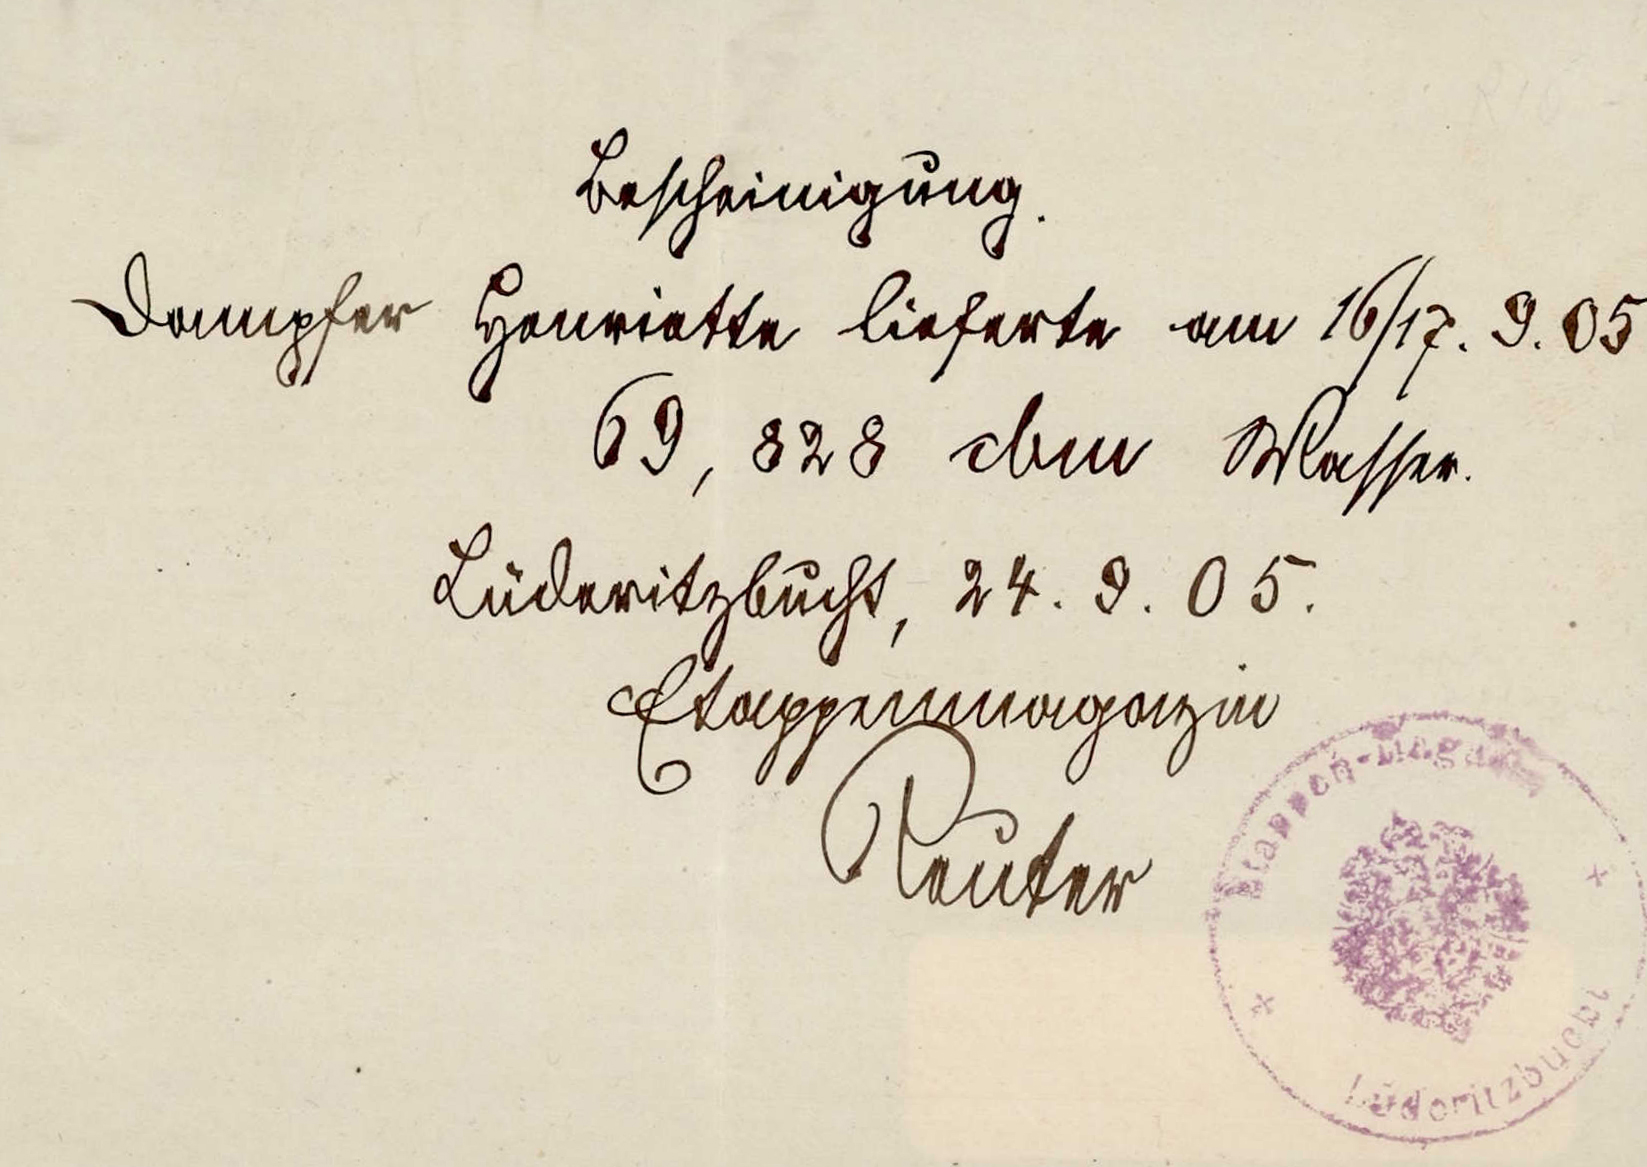 Bescheinigung.
Dampfer Henriette lieferte am 16/17. 9. 05
69, 828 cbm Wasser.
Lüderitzbucht, 24. 9. 05.
Etappenmagazin
Reuter
Etappen-Magazin
Lüderitzbucht